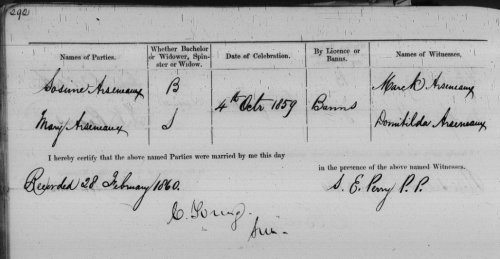 292
Names of Parties. Whether Bachelor or Widower, Spinster or Widow. Date of Celebration. By Licence or Banns. Names of Witnesses.
Sosime Arseneaux B 4th Octr 1859 Banns Marc R Arseneaux
Mary Arseneaux S Domitilda Arseneaux
I hereby certify that the above named Parties were married by me this day
in the presence of the above named Witnesses.
Recorded 28 February 1860.
S. E. Perry P. P.
C. Young